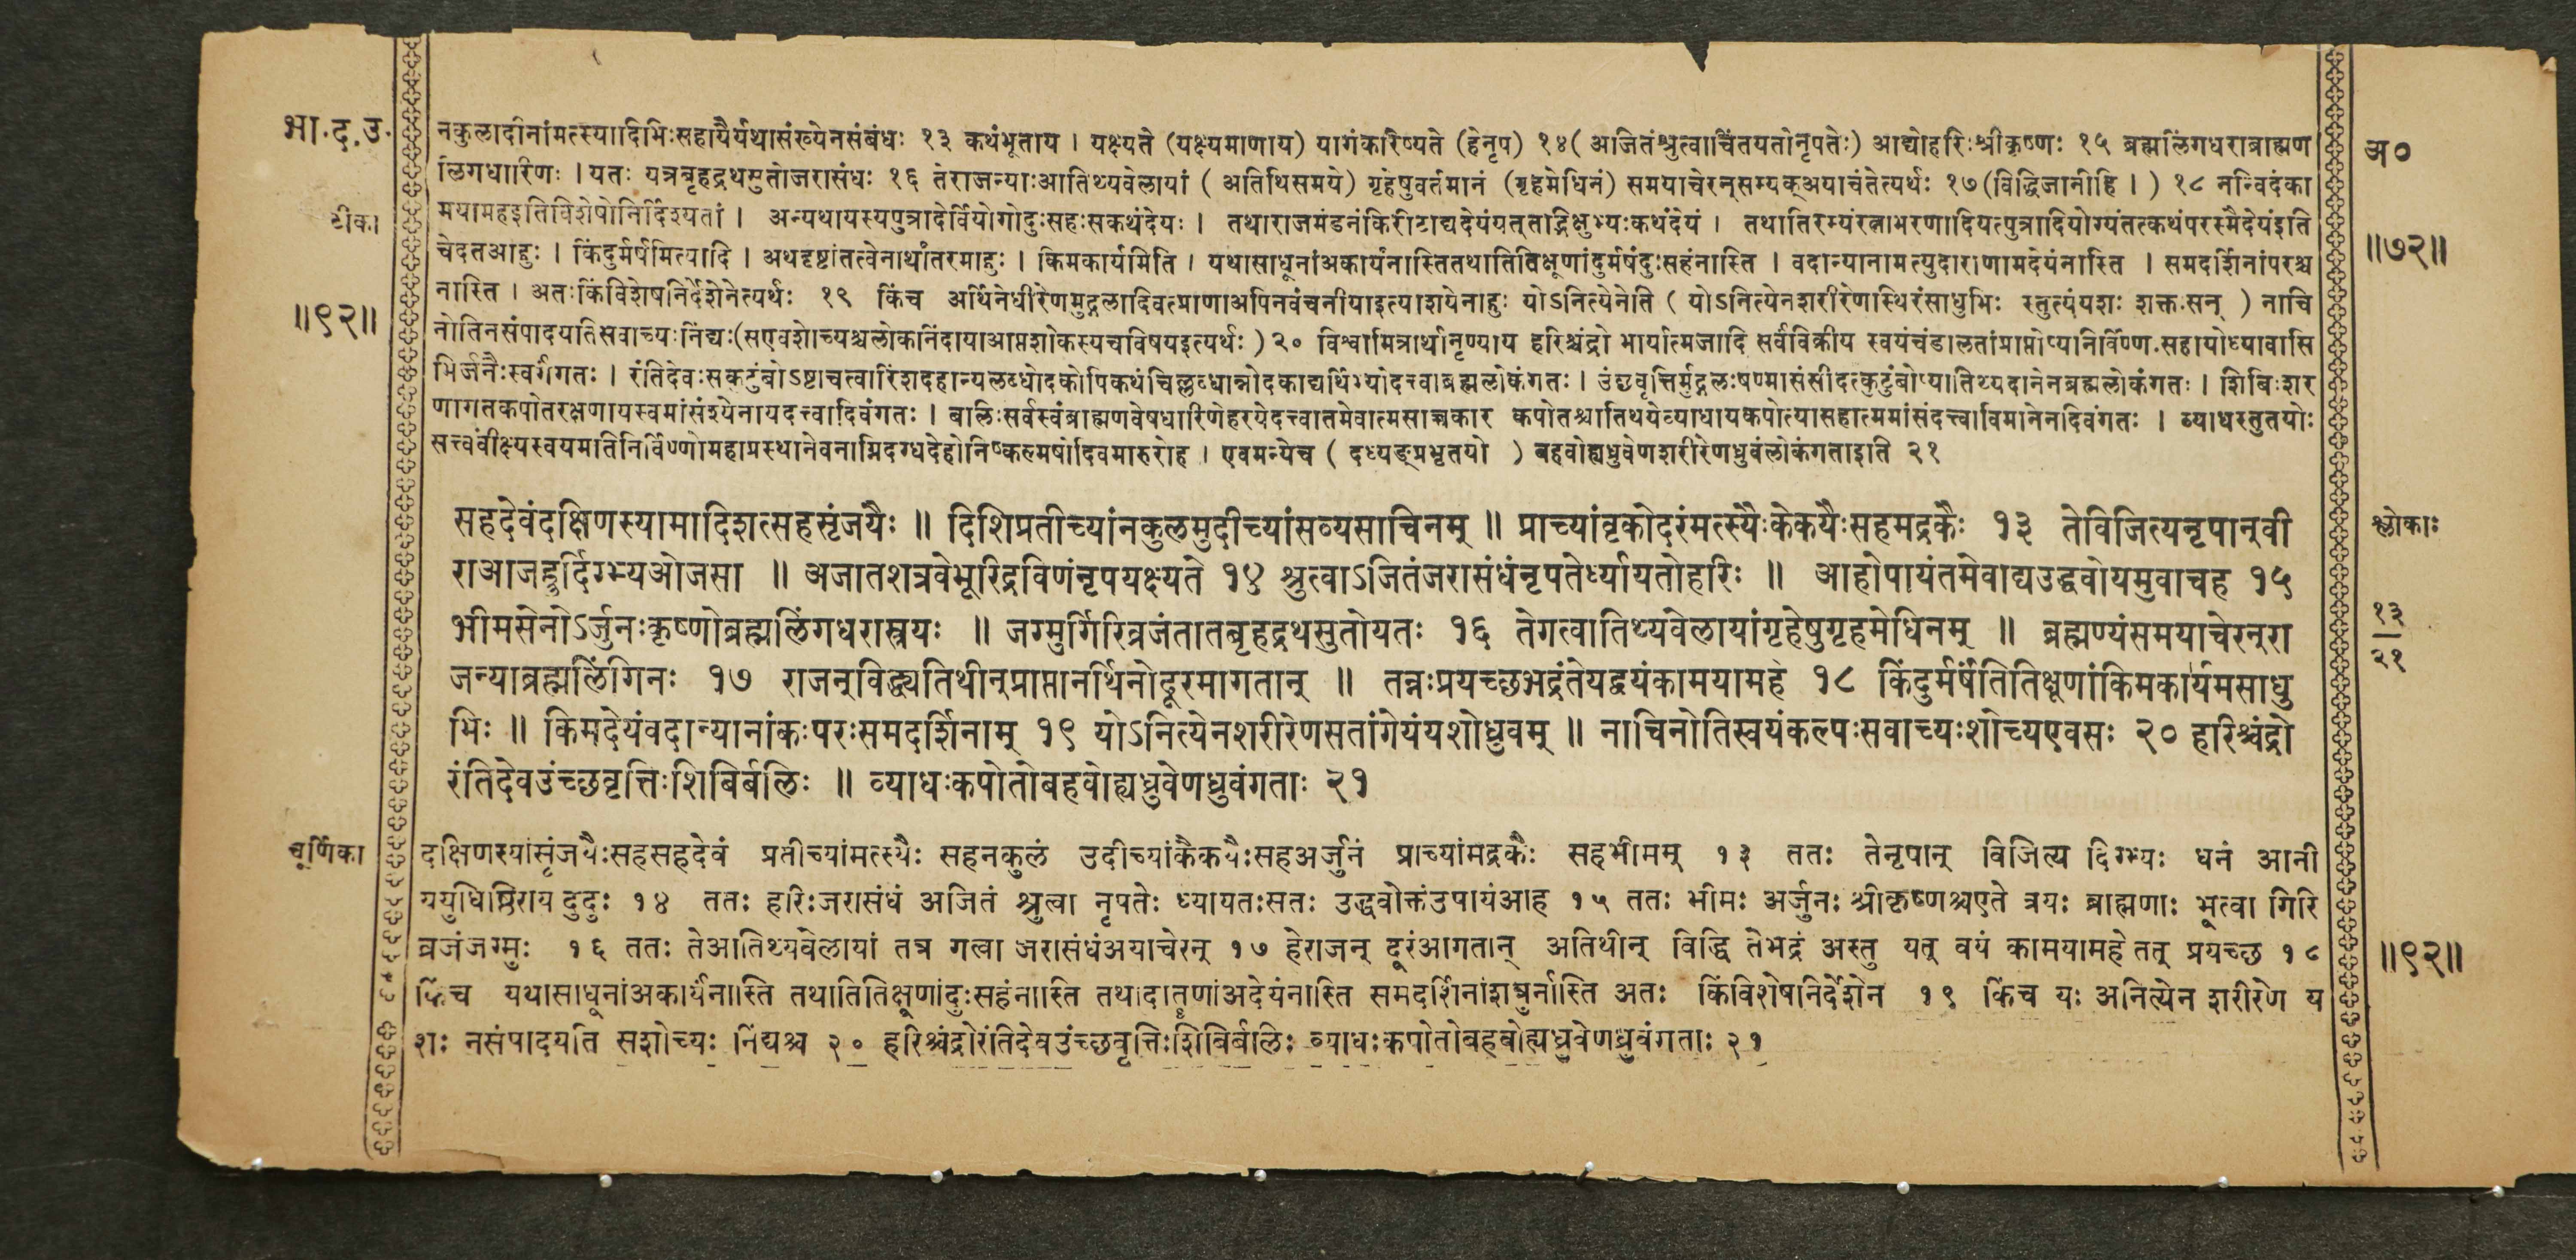 भा.द.उ.
टीका
॥९२॥
नकुलादीनांमत्स्यादिभिःसहायैर्यथासंख्येनसंबंधः १३ कथंभूताय । यक्ष्यते (यक्ष्यमाणाय) यागंकरिष्यते (हेनृप) १४( अजितंश्रुत्वाचिंतयतोनृपतेः) आद्योहरिःश्रीकृष्णः १५ ब्रह्मलिंगधराब्राह्मण
लिंगधारिणः । यतः यत्रबृहद्रथसुतोजरासंधः १६ तेराजन्याःआतिथ्यवेलायां ( अतिथिसमये) गृहेषुवर्तमानं (गृहमेधिनं) समयाचेरन्सम्यक्अयाचंतेत्यर्थः १७(विद्धिजानीहि । ) १८ नन्विदंका
मयामहइतिविशेषोनिर्दिश्यतां । अन्यथायस्यपुत्रादेर्वियोगोदुःसहःसकथंदेयः । तथाराजमंडनंकिरीटाद्यदेयंयत्तद्भिक्षुभ्यःकथंदेयं । तथातिरम्यंरत्नाभरणादियत्पुत्रादियोग्यंतत्कथंपरस्मैदेयंइति
चेदतआहुः । किंदुर्मर्षमित्यादि । अथदृष्टांतत्वेनार्थांतरमाहुः । किमकार्यमिति । यथासाधूनांअकार्यंनास्तितथातितिक्षूणांदुर्मर्षंदुःसहंनास्ति । वदान्यानामत्युदाराणामदेयंनास्ति । समदर्शिनांपरश्च
नास्ति । अतःकिंविशेषनिर्देशेनेत्यर्थः १९ किंच अर्थिनेधीरेणमुद्गलादिवत्प्राणाअपिनवंचनीयाइत्याशयेनाहुः योऽनित्येनेति ( योऽनित्येनशरीरेणस्थिरंसाधुभिः स्तुत्यंयशः शक्तःसन् ) नाचि
नोतिनसंपादयतिसवाच्यःनिंद्यः(सएवशोच्यश्चलोकनिंदायाआप्तशोकस्यचविषयइत्यर्थः ) २० विश्वामित्रार्थानृण्याय हरिश्चंद्रो भार्यात्मजादि सर्वंविक्रीय स्वयंचंडालतांप्राप्तोप्यनिर्विण्णःसहायोध्यावासि
भिर्जनैःस्वर्गंगतः । रंतिदेवःसकटुंबोऽष्टाचत्वारिंशदहान्यलब्धोदकोपिकथंचिल्लब्धान्नोदकाद्यर्थिभ्योदत्त्वाब्रह्मलोकंगतः । उंछवृत्तिर्मुद्गलःषण्मासंसीदत्कुटुंबोप्यातिथ्यदानेनब्रह्मलोकंगतः । शिबिःशर
णागतकपोतरक्षणायस्वमांसंश्येनायदत्त्वादिवंगतः । बलिःसर्वस्वंब्राह्मणवेषधारिणेहरयेदत्त्वातमेवात्मसाच्चकार कपोतश्चातिथयेव्याधायकपोत्यासहात्ममांसंदत्त्वाविमानेनदिवंगतः । व्याधस्तुतयोः
सत्त्वंवीक्ष्यस्वयमातिनिर्विण्णोमहाप्रस्थानेवनाग्निदग्धदेहोनिष्कल्मषोदिवमारुरोह । एवमन्येच ( दध्यङ्प्रभृतयो ) बहवोह्यध्रुवेणशरीरेणध्रुवंलोकंगताइति २१
सहदेवंदक्षिणस्यामादिशत्सहसृंजयैः ॥ दिशिप्रतीच्यांनकुलमुदीच्यांसव्यसाचिनम् ॥ प्राच्यांवृकोदरंमत्स्यैःकेकयैःसहमद्रकैः १३ तेविजित्यनृपान्वी
राआजह्रुर्दिग्भ्यओजसा ॥ अजातशत्रवेभूरिद्रविणंनृपयक्ष्यते १४ श्रुत्वाऽजितंजरासंधंनृपतेर्ध्यायतोहरिः ॥ आहोपायंतमेवाद्यउद्धवोयमुवाचह १५
भीमसेनोऽर्जुनःकृष्णोब्रह्मलिंगधरास्त्रयः ॥ जग्मुर्गिरिव्रजंतातबृहद्रथसुतोयतः १६ तेगत्वातिथ्यवेलायांगृहेषुगृहमेधिनम् ॥ ब्रह्मण्यंसमयाचेरन्रा
जन्याब्रह्मलिंगिनः १७ राजन्विद्ध्यतिथीन्प्राप्तानर्थिनोदूरमागतान् ॥ तन्नःप्रयच्छभद्रंतेयद्वयंकामयामहे १८ किंदुर्मर्षंतितिक्षूणांकिमकार्यमसाधु
भिः ॥ किमदेयंवदान्यानांकःपरःसमदर्शिनाम् १९ योऽनित्येनशरीरेणसतांगेयंयशोध्रुवम् ॥ नाचिनोतिस्वयंकल्पःसवाच्यःशोच्यएवसः २० हरिश्चंद्रो
रंतिदेवउंच्छवृत्तिःशिबिर्बलिः ॥ व्याधःकपोतोबहवोह्यध्रुवेणध्रुवंगताः २१
चूर्णिका
दक्षिणस्यांसृंजयैःसहसहदेवं प्रतीच्यांमत्स्यैः सहनकुलं उदीच्यांकैकयैःसहअर्जुनं प्राच्यांमद्रकैः सहभीमम् १३ ततः तेनृपान् विजित्य दिग्भ्यः धनं आनी
ययुधिष्ठिराय दुदुः १४ ततः हरिःजरासंधं अजितं श्रुत्वा नृपतेः ध्यायतःसतः उद्धवोक्तंउपायंआह १५ ततः भीमः अर्जुनः श्रीकृष्णश्चएते त्रयः ब्राह्मणाः भूत्वा गिरि
व्रजंजग्मुः १६ ततः तेआतिथ्यवेलायां तत्र गत्वा जरासंधंअयाचेरन् १७ हेराजन् दूरंआगतान् अतिथीन् विद्धि तेभद्रं अस्तु यत् वयं कामयामहे तत् प्रयच्छ १८
किंच यथासाधूनांअकार्यंनास्ति तथातितिक्षूणांदुःसहंनास्ति तथादातृणांअदेयंनास्ति समदर्शिनांशत्रुर्नास्ति अतः किंविशेषनिर्देशेन १९ किंच यः अनित्येन शरीरेण य
शः नसंपादयति सशोच्यः निंद्यश्च २० हरिश्चंद्रोरंतिदेवउंच्छवृत्तिःशिबिर्बलिः व्याधःकपोतोबहवोह्यध्रुवेणध्रुवंगताः २१
अ०
॥७२॥
श्लोकाः
१३
२१
॥९२॥